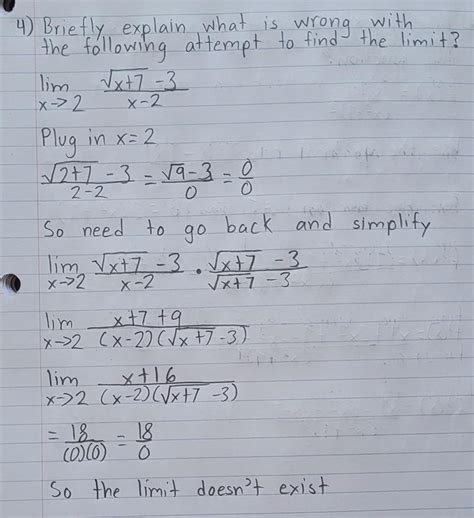 4) Briefly explain what is wrong with
the following attempt to find the limit?
lim x→2 (√(x+7) -3)/(x-2)
Plug in x=2
(√(2+7) -3)/(2-2) = (√9-3)/0 = 0/0
So need to go back and simplify
lim x→2 (√(x+7) -3)/(x-2) · (√(x+7) -3)/(√(x+7) -3)
lim x→2 (x+7+9)/((x-2)(√(x+7) -3))
lim x→2 (x+16)/((x-2)(√(x+7) -3))
= 18/((0)(0)) = 18/0
So the limit doesn't exist